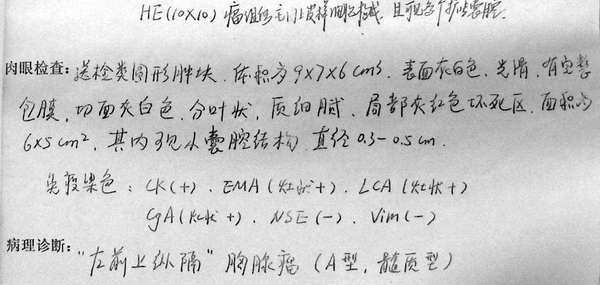 HE(10×10) 瘤组织主以上皮样细胞构成, 且可见多个扩张囊腔.
肉眼检查: 送检类圆形肿块, 体积为9×7×6 cm3, 表面灰白色, 光滑, 有完整
包膜, 切面灰白色, 分叶状, 质细腻, 局部灰红色坏死区, 面积为
6×5 cm2, 其内可见小囊腔结构, 直径 0.3-0.5 cm.
免疫染色: CK(+), EMA(灶状+), LCA(灶状+)
CgA(灶状+), NSE(-), Vim(-)
病理诊断: "左前上纵隔" 胸腺瘤 (A型, 髓质型)